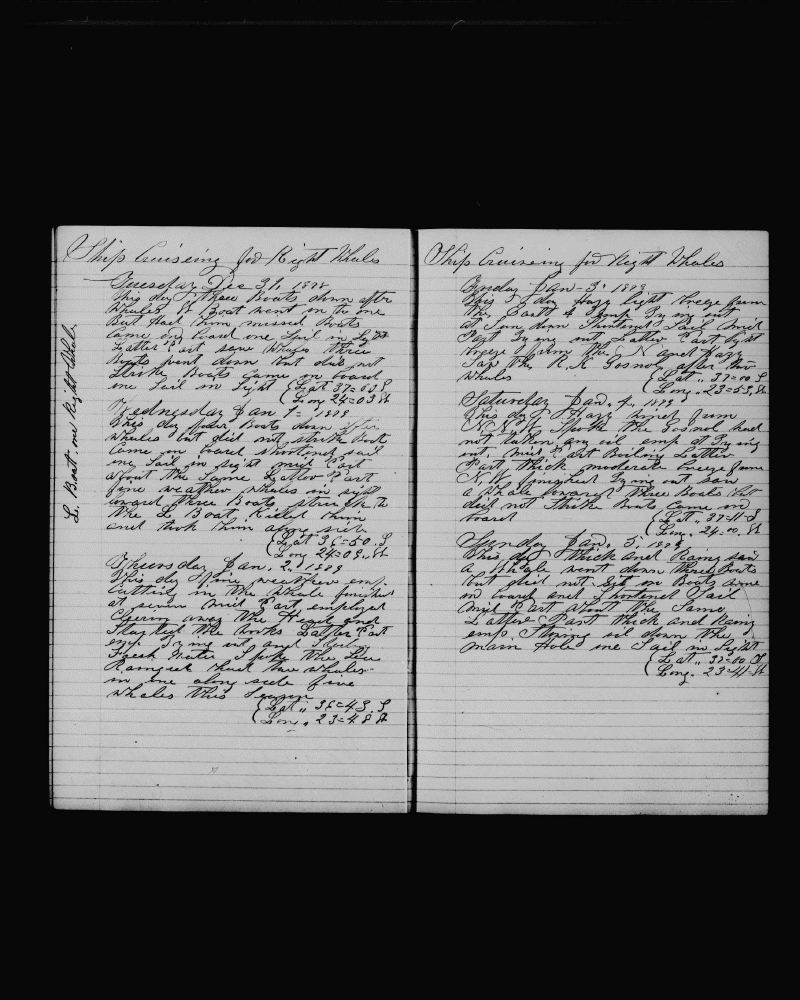 Ship Cruiseing for Right Whales
Tuesday Dec 31, 1888
This day three Boats down after
Whales B Boat went on to one
But had him missed Boats
came on board one Sail in Sight
Latter Part saw Whales three
Boats went down but did not
Strike Boats came on board
one Sail in Sight (Lat 37=03 S
(Long 24=03 W
Wednesday Jan 1= 1889
This day four Boats down after
Whales but did not strike Boats
Came on board shortened sail
one Sail in Sight mid Part
about the Same Latter Part
fine weather Whales in sight
lowered three Boats struck to
the L Boat Killed him
and took him along side
(Lat 36=50 S
(Long 24=09 W
Thursday Jan. 2. 1889
This day fine weather emp.
Cutting in the Whale finished
at seven mid Part employed
Clearing away the Head and
Started the works Latter Part
emp Trying out and
Fresh Water Spoke the
that three Whales
in one along side five
Whales this Season
(Lat .. 36=43. S
(Long . 23=48 W
L. Boat one Right Whale
Ship Cruiseing for Right Whales
Friday Jan - 3. 1889
This day Hazy light breeze from
the Trying out
at Sun down Shortened Sail mid
Part Trying out Latter Part light
breeze from the N and Hazy
Saw the Gosnol after
Whales (Lat .. 37=00 S
(Long . 23=53. W
Saturday Jan. 4. 1889
This day Hazy wind from
N.N.W Spoke the Gosnol had
not taken any oil emp at Trying
out. mid Part Boiling Latter
Part thick moderate breeze from
N.W finished Trying out saw
a Whale lowered three Boats but
did not Strike Boats Came on
board (Lat .. 37=11 S
(Long . 24=00. W
Sunday Jan. 5. 1889
This day thick and Rainy saw
a Whale went down three Boats
but did not git on Boats came
on board and Shortened Sail
mid Part about the Same
Latter Part thick and Rainy
emp. Stowing oil down the
main Hole one Sail in Sight
(Lat .. 37=00 S
(Long. 23=41 W